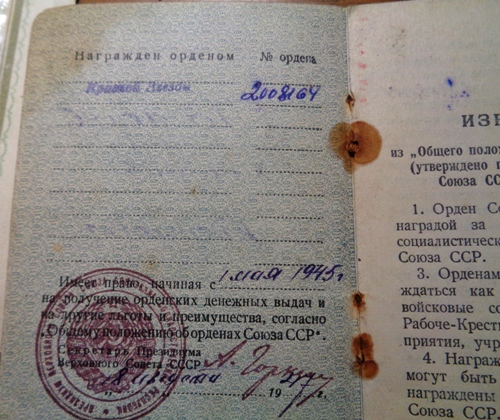 Награжден орденом
№ ордена
Красной Звезды
2008164
Имеет право, начиная с 1 мая 1945 г
на получение орденских денежных выдач и
на другие льготы и преимущества, согласно
„Общему положению об орденах Союза ССР“.
Секретарь Президиума
Верховного Совета СССР
19
ИЗ
из „Общего поло
(утверждено п
Союза СС
1. Орден Со
наградой за
социалистическ
Союза ССР.
3. Орденам
ждаться как
войсковые со
Рабоче-Крест
приятия, учр
4. Награж
могут быть
награждены
Союза ССР